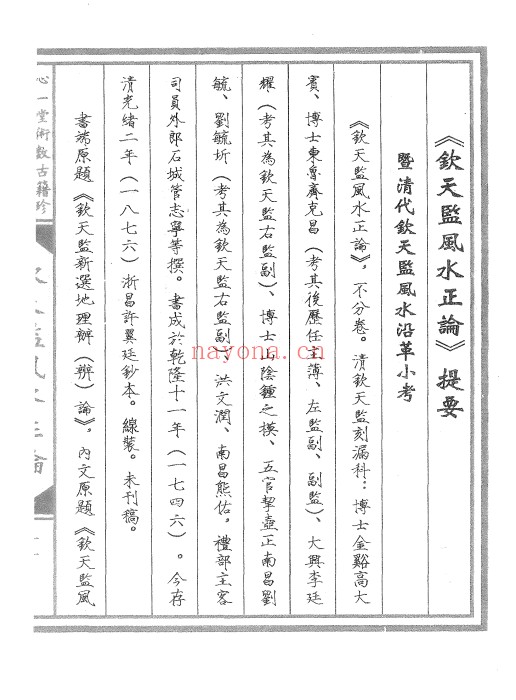 《欽天監風水正論》提要
暨清代欽天監風水沿革小考
《欽天監風水正論》，不分卷。清欽天監刻漏科：博士金谿高大
賓、博士東魯齋克昌（考其後歷任主薄、左監副、副監）、大興李廷
耀（考其為欽天監右監副）、博士山陰鍾之模、五官挈壺正南昌劉
毓、劉毓圻（考其為欽天監右監副）、洪文潤、南昌熊佑，禮部主客
司員外郎石城管志寧等撰。書成於乾隆十一年（一七四六）。今存
清光緒二年（一八七六）浙昌許翼廷鈔本。線裝。未刊稿。
書端原題《欽天監新選地理辦（辨）論》，內文原題《欽天監風
心一堂術數古籍珍
nayona.cn